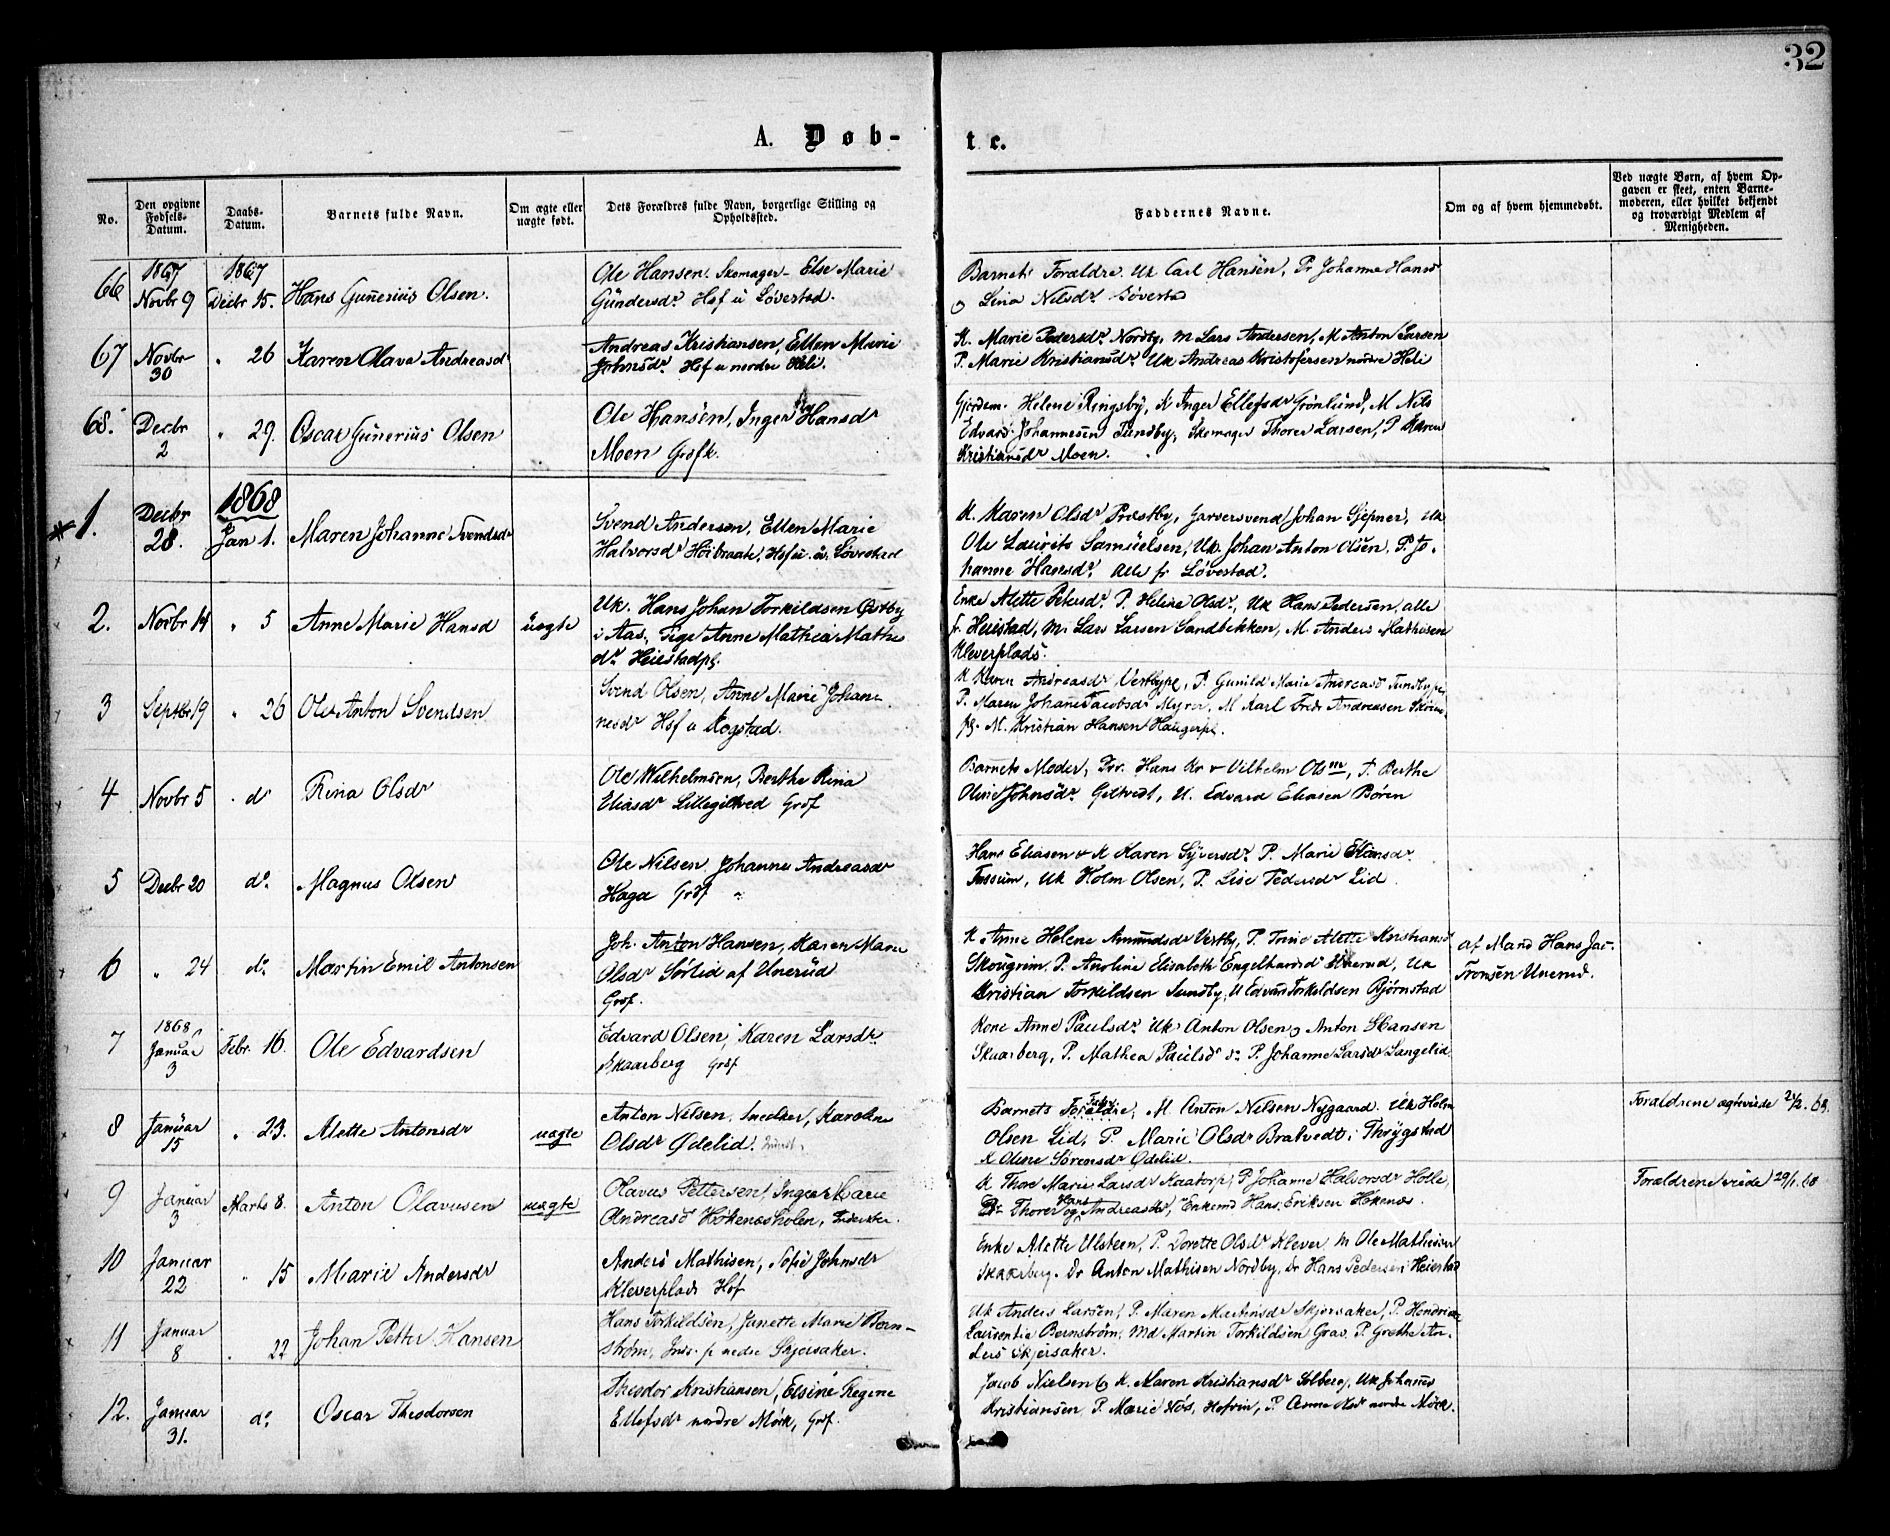 32
A. Døb-
te.
No.
Den opgivne Fødsels-Datum.
Daabs-Datum.
Barnets fulde Navn.
Om ægte eller uægte født.
Dets Forældres fulde Navn, borgerlige Stilling og Opholdssted.
Faddernes Navne.
Om og af hvem hjemmedøbt.
Ved uægte Børn, af hvem Opgaven er skeet, enten Barnemoderen, eller hvilket bekjendt og troværdigt Medlem af Menigheden.
66 1867 Novbr 9 1867 Decbr 15. Hans Gunerius Olsen.
Ole Hansen. Skomager - Else Marie
Gundersdr. Hsf u Løvestad.
Barnets Forældre. Uk Carl Hansen, P. Johanne Hansd
o Lina Nilsdr. Løvestad
67 Novbr 30 " 26 Karen Olava Andreasdr
Andreas Kristiansen, Ellen Marie
Johnsdr. Hsf u nordre Heli.
K. Marie Pedersdr. Nordby, M Lars Andersen, M Anton Larsen
P. Marie Kristiansdr. Uk Andreas Kristofersen nordre Heli
68. Decbr 2 " 29. Oscar Gunerius Olsen
Ole Hansen, Inger Hansdr
Moen Grofk.
Gjordem. Helene Ringsby, K Inger Ellefsdr Grønlund, M Nils
Edvard Johannesen Sundby, Skomager Thorer Larsen, P Karen
Kristiansdr Moen.
1. Decbr 28. 1868 Jan 1. Maren Johanne Svendsdr
Svend Andersen, Ellen Marie
Halvorsdr Høibraate, Hsf u. Løvestad
K. Karen Olsdr Præstby, Garversvend Johan Sjepner, Uk
Ole Laurits Samuelsen, Uk. Johan Anton Olsen, P. Jo-
hanne Hansdr. alle fr Løvestad.
2. Novbr 14 " 5 Anne Marie Hansd uægte
Uk. Hans Johan Torkildsen Østby
i Aas, Pige Anne Mathea Mathis
dr. Heiestadpl.
Enke Alette Petersdr. P. Helene Olsdr., Uk Hans Pedersen, alle
fr. Heiestad, M. Lars Larsen Sandbekken, M. Anders Mathisen
Kleverplads.
3 Septbr 19 " 26 Ole Anton Svendsen
Svend Olsen, Anne Marie Johan
nesdr Hsf u Rogstad.
K Karen Andreasdr Vestbypl, P. Gunild Marie Andreasd Sundbypl
P. Maren Johanne Jacobsdr Myrer, M Karl Fredr Andreasen
pl. M. Kristian Hansen Haugerpl.
4 Novbr 5 " do Rina Olsdr
Ole Wilhelmsen, Berthe Rina
Eliasdr Lillegiltved Grof
Barnets Moder, Hans Kr & Vilhelm Olsen, P. Berthe
Oline Johnsdr. Giltvedt, U. Edvard Eliasen Børen
5 Decbr 20 do. Magnus Olsen
Ole Nilsen Johanne Andreasdr
Haga Grof
Hans Eliasen & K Karen Syversdr. P. Marie Hansdr.
Fossum, Uk Holm Olsen, P. Lise Pedersdr Lid
6 " 24 do. Martin Emil Antonsen
Joh. Anton Hansen, Karen Marie
Olsdr Sørlid af Unerud
Grof.
K Anne Helene Amundsdr Vestby, P. Trine Alette Kristiansd
Skougrim. P. Anoline Elisabeth Engelhardsd Unerud, Uk
Kristian Torkildsen Sundby, U Edvard Torkildsen Bjørnstad
af Mand Hans Jac-
Tronsen Unerud.
7 1868 Januar 3 Febr. 16. Ole Edvardsen
Edvard Olsen, Karen Larsdr
Skaarberg Grof
Kone Anne Paulsdr. Uk Anton Olsen og Anton Hansen
Skaarberg, P. Mathea Paulsd do P. Johanne Larsdr Langelid
8 Januar 15 " 23. Alette Antonsdr uægte
Anton Nilsen, Snedker, Karoline
Olsdr Ødelid.
Barnets Forældre, M. Anton Nilsen Nygaard. Uk Holm
Olsen Lid, P. Marie Olsdr Bratvedt i Thrygstad
K Oline Sørensdr Ødelid.
Forældrene ægteviede 21/2. 69.
9 Januar 3 Marts 8. Anton Olavusen uægte
Olavus Pettersen, Inger Marie
Andreasd Høkenæsholen,
K Thore Marie Larsdr Kaatorp, P Johanne Halvorsdr Holle
Dr. Thorer og Hans Andreasdr, Enkemd Hans Eriksen Høkenæs.
Forældrene viede 29/1. 68
10 Januar 22 " 15 Marie Andersdr
Anders Mathisen, Sofie Johnsdr
Kleverplads Hof
Enke Alette Ulsteen, P. Dorette Olsdr Klever M Ole Mathisen
Skaarberg. Dr Anton Mathisen Nordby, Dr Hans Pedersen Heiestad
11 Januar 8 " 22 Johan Petter Hansen
Hans Torkildsen, Janette Marie Bern-
strøm, Inds. p nedre Skjersaker.
Uk Anders Larsen, P. Maren Martinsdr Skjersaker, P. Hendrikke
Laurentia Bernstrøm, Md Martin Torkildsen Grav, P. Grethe An-
ders Skjersaker.
12. Januar 31. do. Oscar Theodorsen
Theodor Kristiansen, Elsine Regine
Ellefsdr nordre Mørk, Grf.
Jacob Nielsen og K. Maren Kristiansdr Solberg, Uk Johannes
Kristiansen, P. Marie Hofvin, P. Anne nordre Mørk.